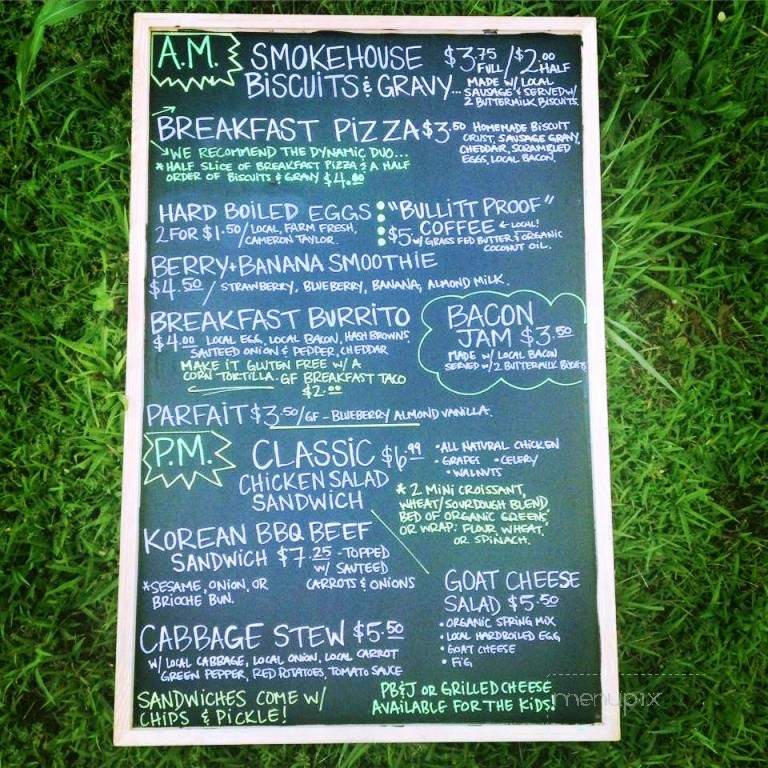 A.M. SMOKEHOUSE $3.75 FULL / $2.00 HALF
BISCUITS & GRAVY... MADE W/ LOCAL
SAUSAGE & SERVED W/
2 BUTTERMILK BISCUITS.
BREAKFAST PIZZA $3.50 HOMEMADE BISCUIT
CRUST, SAUSAGE GRAVY,
CHEDDAR, SCRAMBLED
EGGS, LOCAL BACON.
WE RECOMMEND THE DYNAMIC DUO...
* HALF SLICE OF BREAKFAST PIZZA & A HALF
ORDER OF BISCUITS & GRAVY $4.00
HARD BOILED EGGS
2 FOR $1.50 / LOCAL, FARM FRESH,
CAMERON TAYLOR.
"BULLITT PROOF"
COFFEE ← LOCAL!
$5 W/ GRASS FED BUTTER & ORGANIC
COCONUT OIL.
BERRY + BANANA SMOOTHIE
$4.50 / STRAWBERRY, BLUEBERRY, BANANA, ALMOND MILK.
BREAKFAST BURRITO
$4.00 LOCAL EGG, LOCAL BACON, HASH BROWNS,
SAUTEED ONION & PEPPER, CHEDDAR
MAKE IT GLUTEN FREE W/ A
CORN TORTILLA. GF BREAKFAST TACO
$2.00
BACON
JAM $3.50
MADE W/ LOCAL BACON
SERVED W/ 2 BUTTERMILK BISCUITS
PARFAIT $3.50/GF - BLUEBERRY ALMOND VANILLA.
P.M. CLASSIC $6.99
CHICKEN SALAD
SANDWICH
• ALL NATURAL CHICKEN
• GRAPES • CELERY
• WALNUTS
* 2 MINI CROISSANT,
WHEAT/SOURDOUGH BLEND
BED OF ORGANIC GREENS
OR WRAP: FLOUR, WHEAT,
OR SPINACH.
KOREAN BBQ BEEF
SANDWICH $7.25 - TOPPED
W/ SAUTEED
CARROTS & ONIONS
* SESAME, ONION, OR
BRIOCHE BUN.
GOAT CHEESE
SALAD $5.50
• ORGANIC SPRING MIX
• LOCAL HARDBOILED EGG
• GOAT CHEESE
• FIG
CABBAGE STEW $5.50
W/ LOCAL CABBAGE, LOCAL ONION, LOCAL CARROT
GREEN PEPPER, RED POTATOES, TOMATO SAUCE
SANDWICHES COME W/
CHIPS & PICKLE!
PB&J OR GRILLED CHEESE
AVAILABLE FOR THE KIDS!
menupix